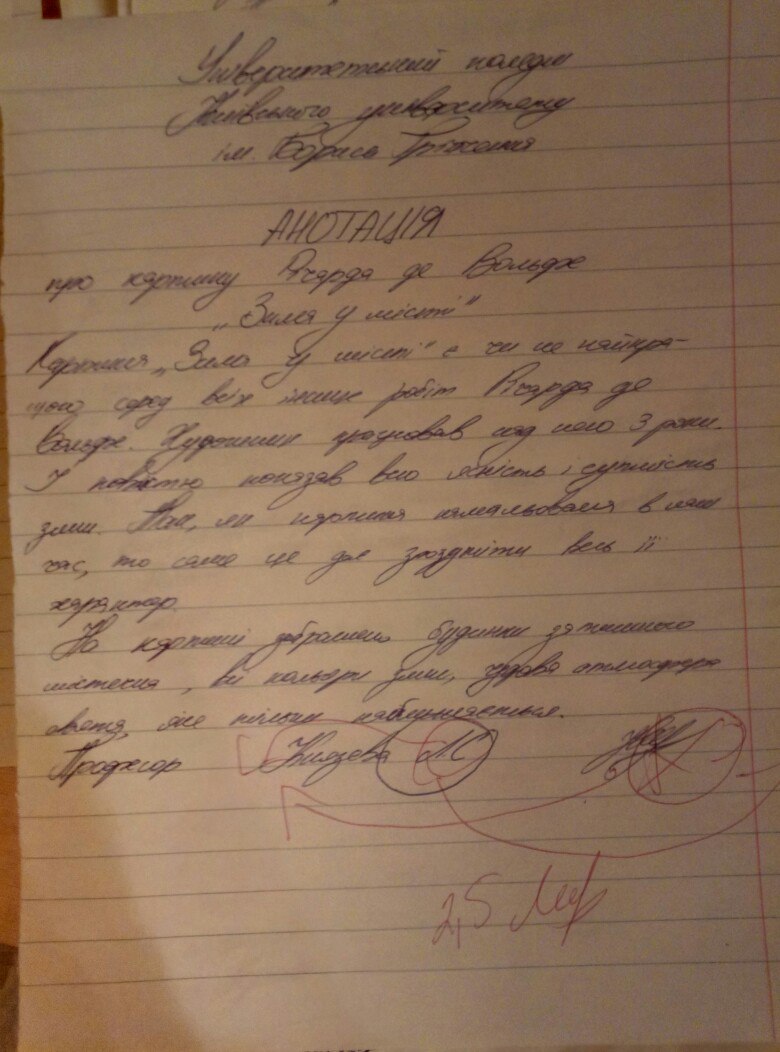 Університетський коледж
Київського університету
ім. Бориса Грінченка
АНОТАЦІЯ
про картину Річарда де Вольфе
„Зима у місті"
Картина „Зима у місті" є чи не найкра-
щою серед всіх інших робіт Річарда де
Вольфе. Художник працював над нею 3 роки.
І повністю показав всю ясність і сутність
зими. Так, як картина намальована в наш
час, то саме це дає зрозуміти весь її
характер.
На картині зображено будинки затишного
містечка, всі кольори зими, чудова атмосфера
свята, яке тільки наближається.
Професор Князева Л С
2,5